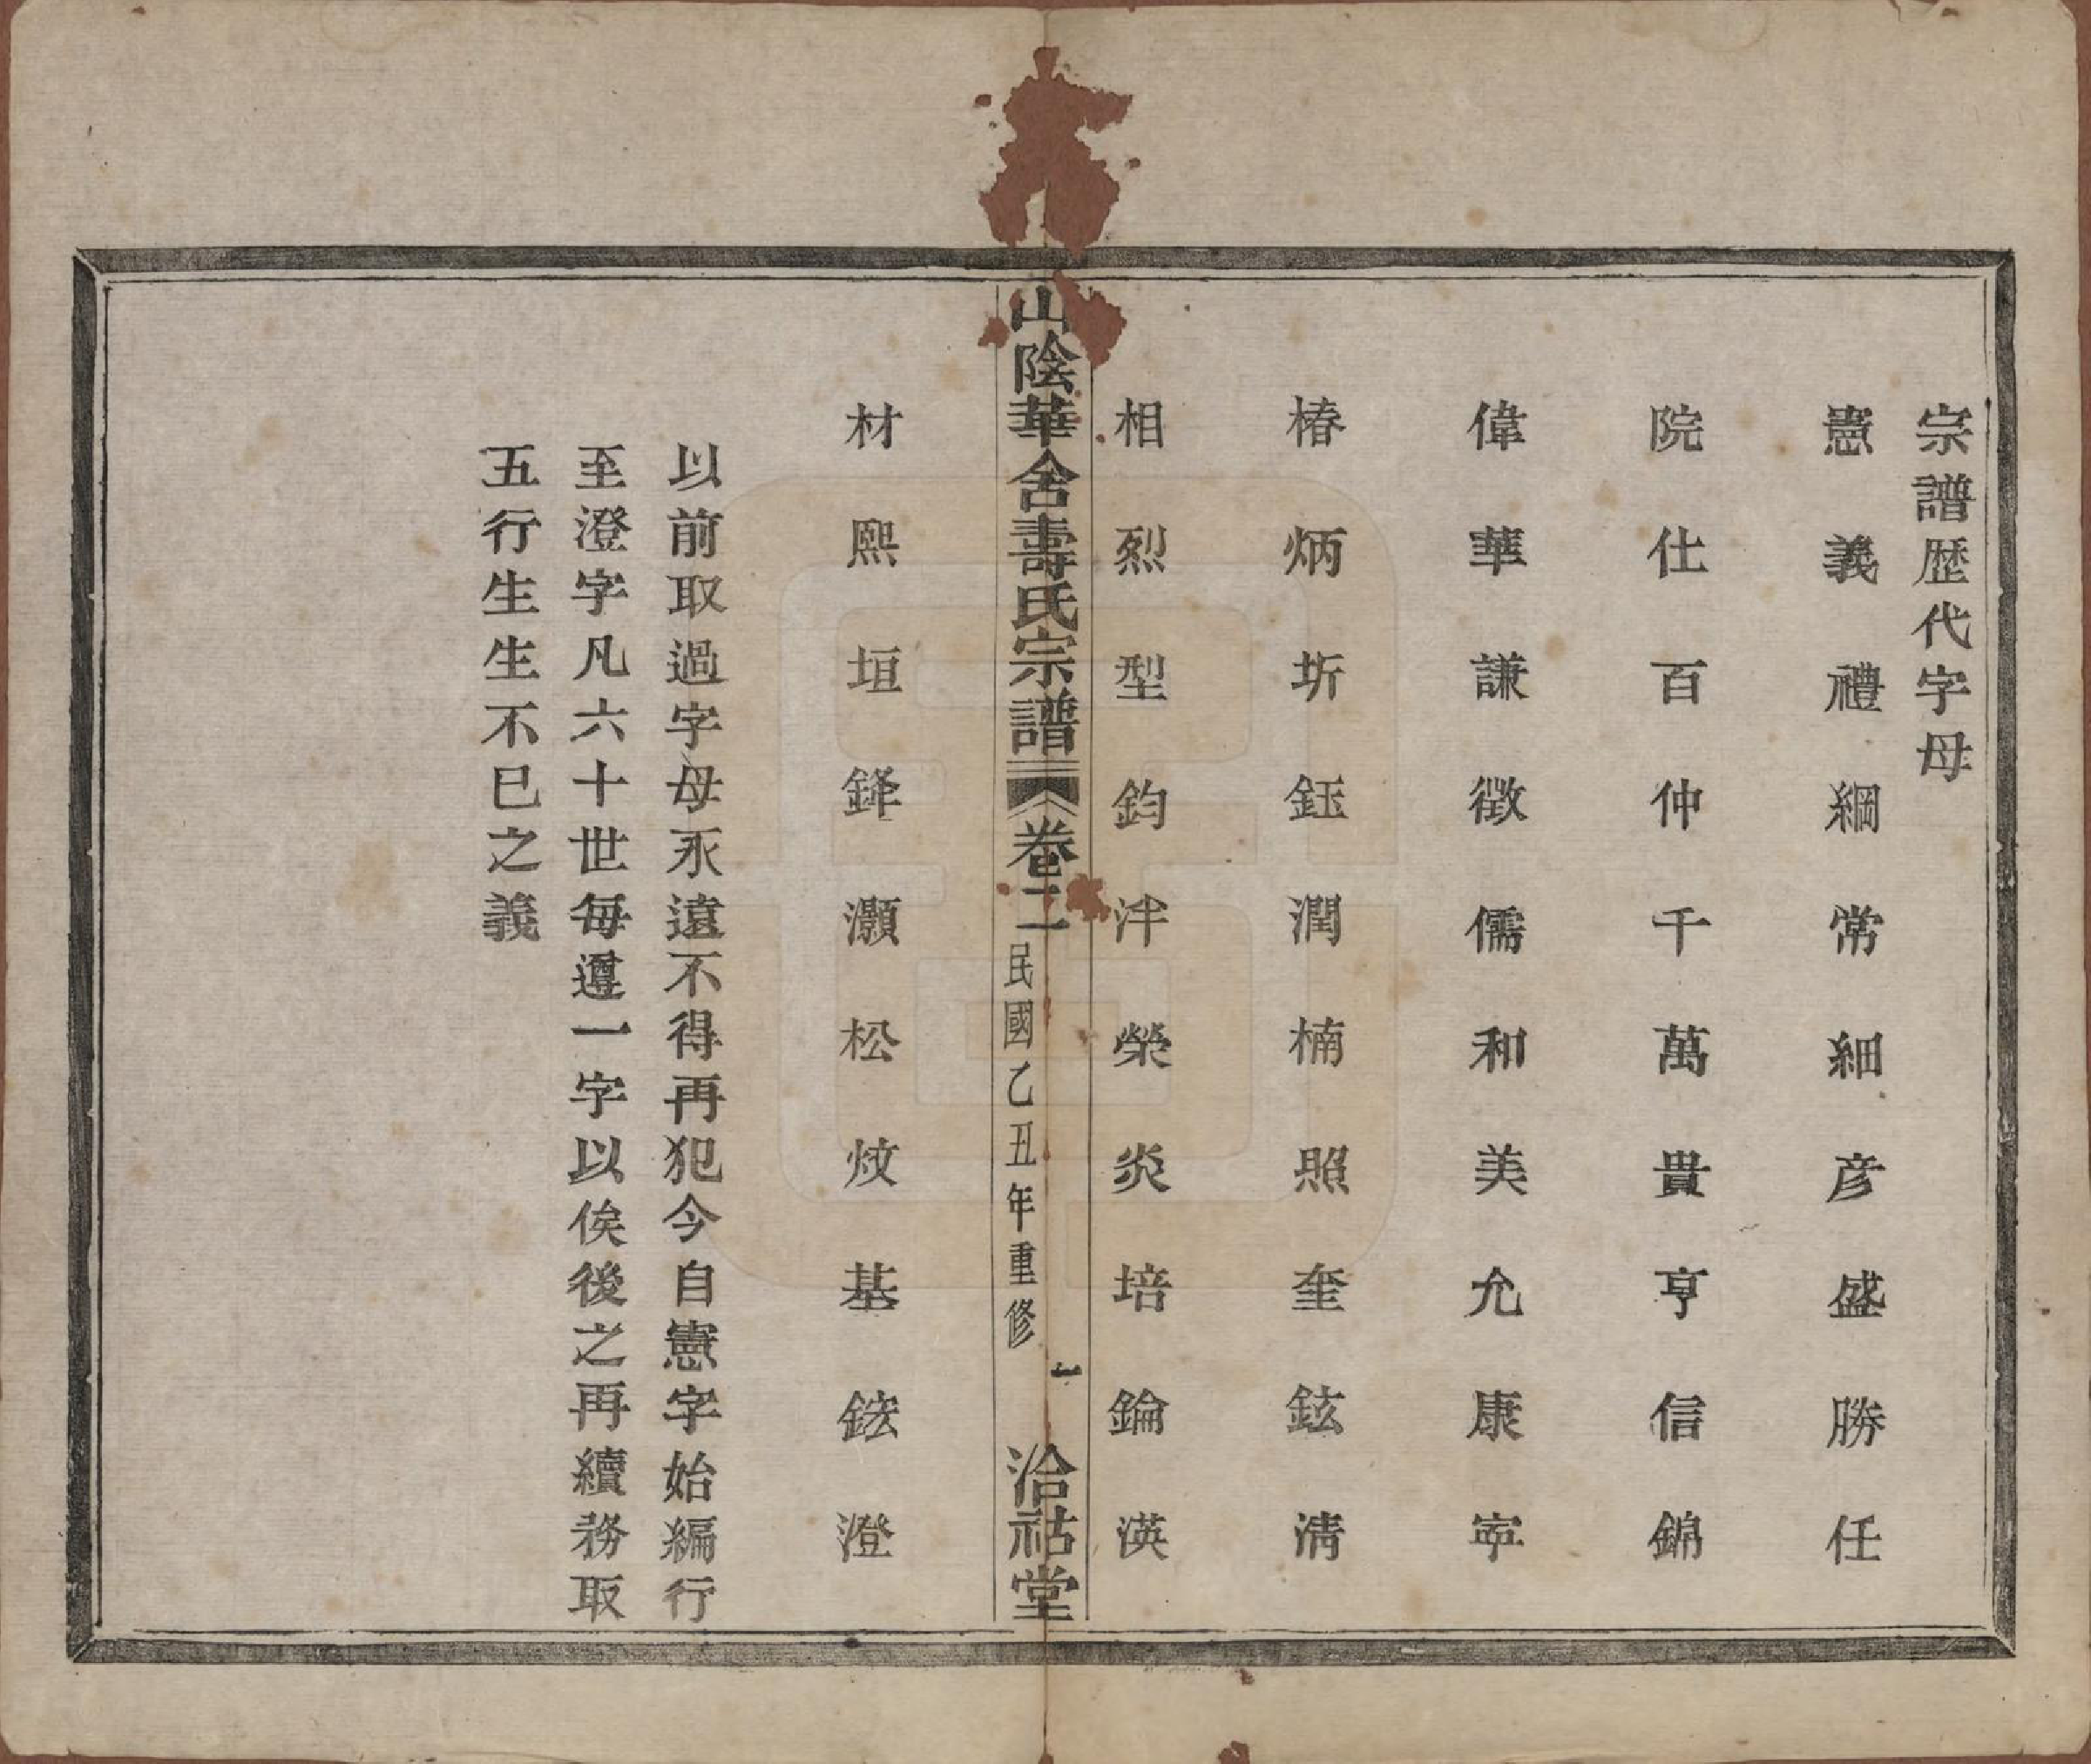 宗譜歴代字母
憲義禮綱常細彦盛勝任
院仕百仲千萬貴亨信錦
偉華謙徵儒和美允康寧
椿炳圻鈺潤楠照奎鉉清
相烈型鈞泮榮炎培錀渶
山陰華舍壽氏宗譜
卷二
民國乙丑年重修
一
洽祜堂
材熙垣鋒灝松炆基鋐澄
以前取過字母永遠不得再犯今自憲字始編行
至澄字凡六十世每遵一字以俟後之再續務取
五行生生不巳之義